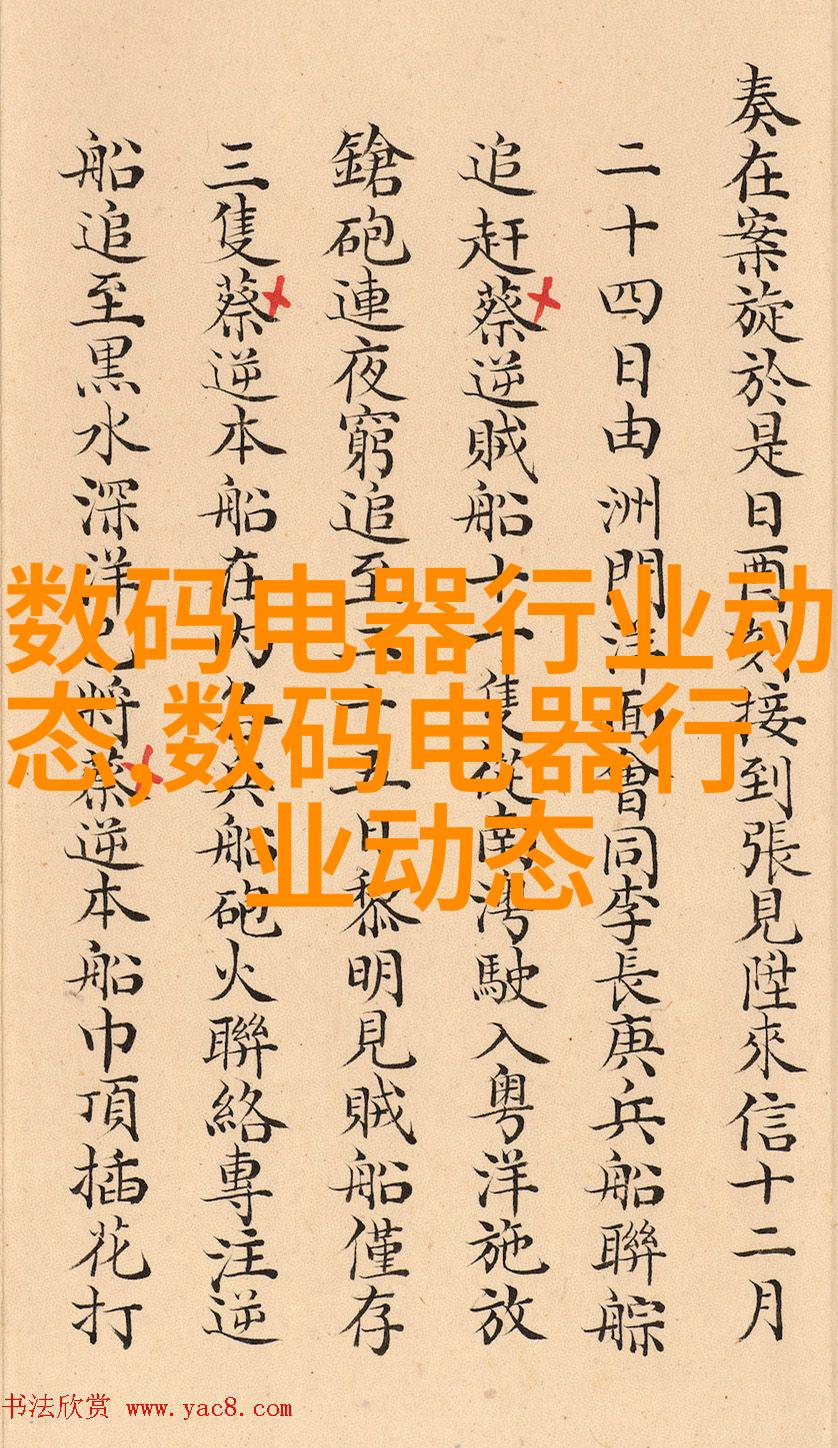 奏在案旋於是日酉刻接到張見陞來信十二月
二十四日由洲門洋面會同李長庚兵船聯䑸
追赶蔡逆賊船十一隻從南灣駛入粵洋施放
鎗砲連夜窮追至二十五日黎明見賊船僅存
三隻蔡逆本船在內各兵船砲火聯絡專注逆
船追至黑水深洋已將蔡逆本船巾頂插花打
数码电器行业动
态,数码电器行
业动态
书法欣赏 www.yac8.com